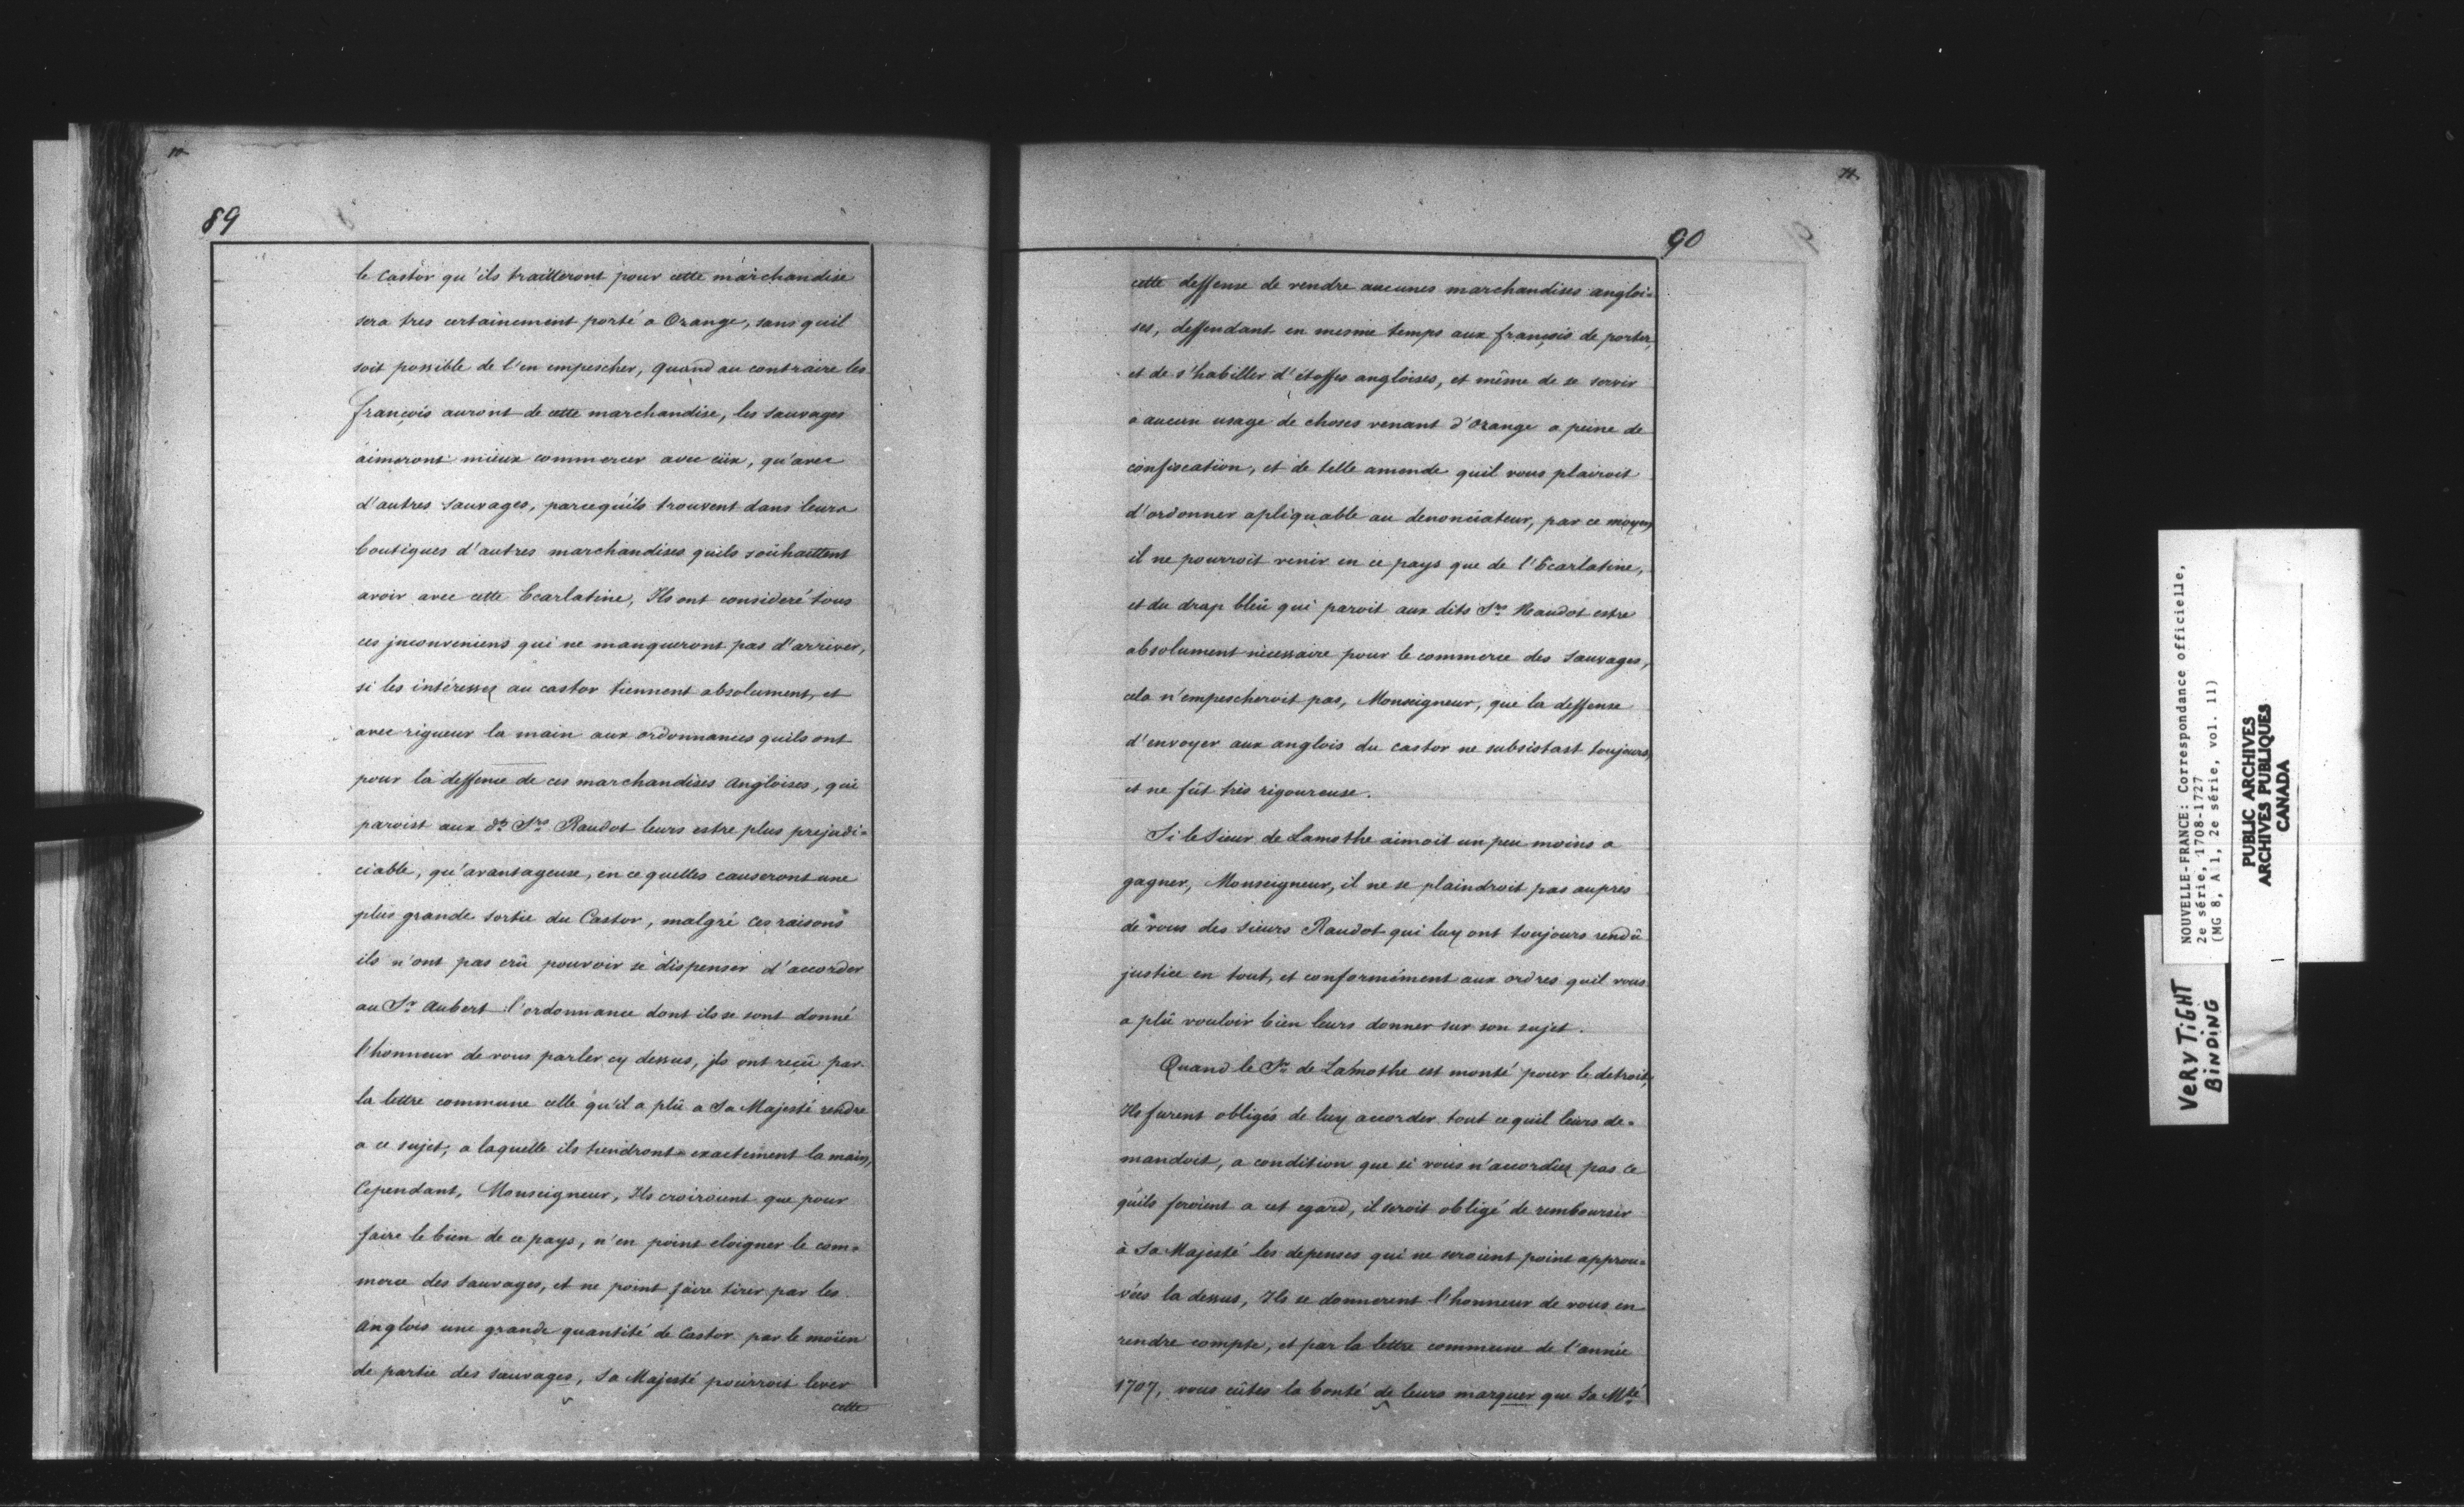 89
le Castor qu'ils traitteront pour cette marchandise
sera tres certainement porté a Orange, sans quil
soit possible de l'en empescher, quand au contraire les
françois auront de cette marchandise, les sauvages
aimeront mieux commercer avec eüx, qu'avec
d'autres sauvages, parcequ'ils trouvent dans leurs
boutiques d'autres marchandises quils souhaittent
avoir avec cette Ecarlatine, Ils ont consideré tous
ces jnconveniens qui ne manqueront pas d'arriver,
si les intéressez au castor tiennent absolument, et
avec rigueur la main aux ordonnances quils ont
pour la deffence de ces marchandises Angloises, qui
paroist aux ds. Srs. Raudot leurs estre plus prejudi=
ciable, qu'avantageuse, en ce quelles causeront une
plus grande sortie du Castor, malgré ces raisons
ils n'ont pas crû pouvoir se dispenser d'accorder
au Sr. Aubert l'ordonnance dont ils se sont donné
l'honneur de vous parler cy dessus, jls ont reçû par
la lettre commune celle qu'il a plû a Sa Majesté rendre
a ce sujet, a laquelle ils tiendront exactement la main,
Cependant, Monseigneur, Ils croiroient que pour
faire le bien de ce pays, n'en point eloigner le com=
merce des sauvages, et ne point faire tirer par les
Anglois une grande quantité de Castor par le moïen
de partie des sauvages, Sa Majesté pourroit lever
cette
90
cette deffense de vendre aucunes marchandises angloi=
ses, deffendant en mesme temps aux françois de porter,
et de s'habiller d'étoffes angloises, et même de se servir
a aucun usage de choses venant d'Orange a peine de
confiscation, et de telle amende quil vous plairoit
d'ordonner apliquable au denonciateur, par ce moyen
il ne pourroit venir en ce pays que de l'Ecarlatine,
et du drap bleû qui paroit aux dits Srs. Raudot estre
absolument nécessaire pour le commerce des sauvages,
cela n'empescheroit pas, Monseigneur, que la deffense
d'envoyer aux anglois du castor ne subsistast toujours,
et ne fût très rigoureuse.
Si le Sieur de Lamothe aimoit un peu moins a
gagner, Monseigneur, il ne se plaindroit pas aupres
de vous des sieurs Raudot qui luy ont toujours rendû
justice en tout, et conformément aux ordres quil vous
a plû vouloir bien leurs donner sur son sujet.
Quand le Sr. de Lamothe est monté pour le detroit,
Ils furent obligés de luy accorder tout ce quil leurs de=
mandoit, a condition que si vous n'accordiez pas ce
quils feroient a cet egard, il seroit obligé de rembourser
à Sa Majesté les depenses qui ne seroient point approu=
vées la dessus, Ils se donnerent l'honneur de vous en
rendre compte, et par la lettre commune de l'année
1707, vous eûtes la bonté de leurs marquer que Sa Mté
NOUVELLE-FRANCE: Correspondance officielle,
2e série, 1708-1727
(MG 8, A 1, 2e série, vol. 11)
PUBLIC ARCHIVES
ARCHIVES PUBLIQUES
CANADA
VERY TiGHT
BiNDiNG